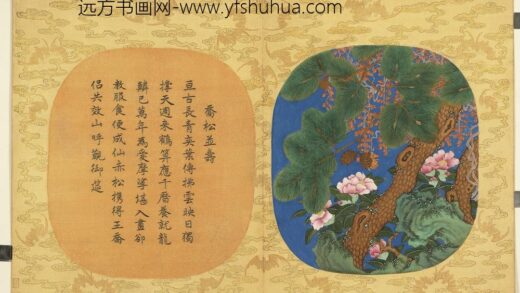 远方书画网-www.yfshuhua.com
喬松並壽
亘古長青奕葉傳拂雲映日獨
撐天週來鶴算應千曆養就龍
鱗已萬年為愛摩挲堪入畫卻
教服食便成仙赤松攜得王喬
侶共效山呼覲御筵